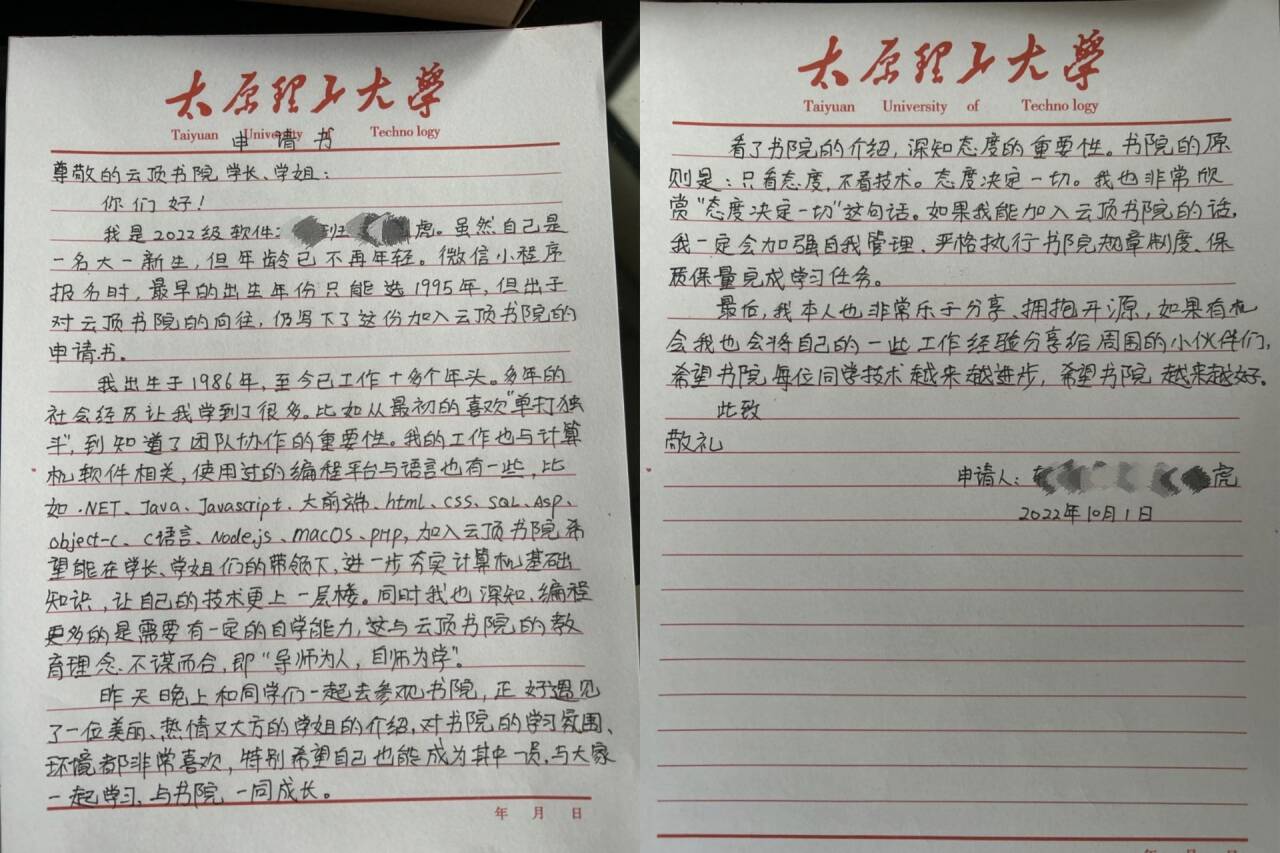 太原理工大学
Taiyuan University Technology
申请书
尊敬的云顶书院学长、学姐：
你们好！
我是2022级软件: 班 虎。虽然自己是
一名大一新生，但年龄已不再年轻。微信小程序
报名时，最早的出生年份只能选1995年，但出于
对云顶书院的向往，仍写下了这份加入云顶书院的
申请书。
我出生于1986年，至今已工作十多个年头。多年的
社会经历让我学到了很多。比如从最初的喜欢“单打独
斗”，到知道了团队协作的重要性。我的工作也与计算
机软件相关，使用过的编程平台与语言也有一些，比
如.NET、Java、Javascript、大前端、html、CSS、SQL、Asp、
object-c、C语言、Node.js、macOS、PHP，加入云顶书院希
望能在学长、学姐们的带领下，进一步夯实计算机基础
知识，让自己的技术更上一层楼。同时我也深知，编程
更多的是需要有一定的自学能力，这与云顶书院的教
育理念不谋而合，即“导师为人，自师为学”。
昨天晚上和同学们一起去参观书院，正好遇见
了一位美丽、热情又大方的学姐的介绍，对书院的学习氛围、
环境都非常喜欢，特别希望自己也能成为其中一员，与大家
一起学习，与书院一同成长。
年 月 日
太原理工大学
Taiyuan University of Technology
看了书院的介绍，深知态度的重要性。书院的原
则是：只看态度，不看技术。态度决定一切。我也非常欣
赏“态度决定一切”这句话。如果我能加入云顶书院的话，
我一定会加强自我管理、严格执行书院规章制度、保
质保量完成学习任务。
最后，我本人也非常乐于分享、拥抱开源，如果有机
会我也会将自己的一些工作经验分享给周围的小伙伴们，
希望书院每位同学技术越来越进步，希望书院越来越好。
此致
敬礼
申请人： 虎
2022年10月1日